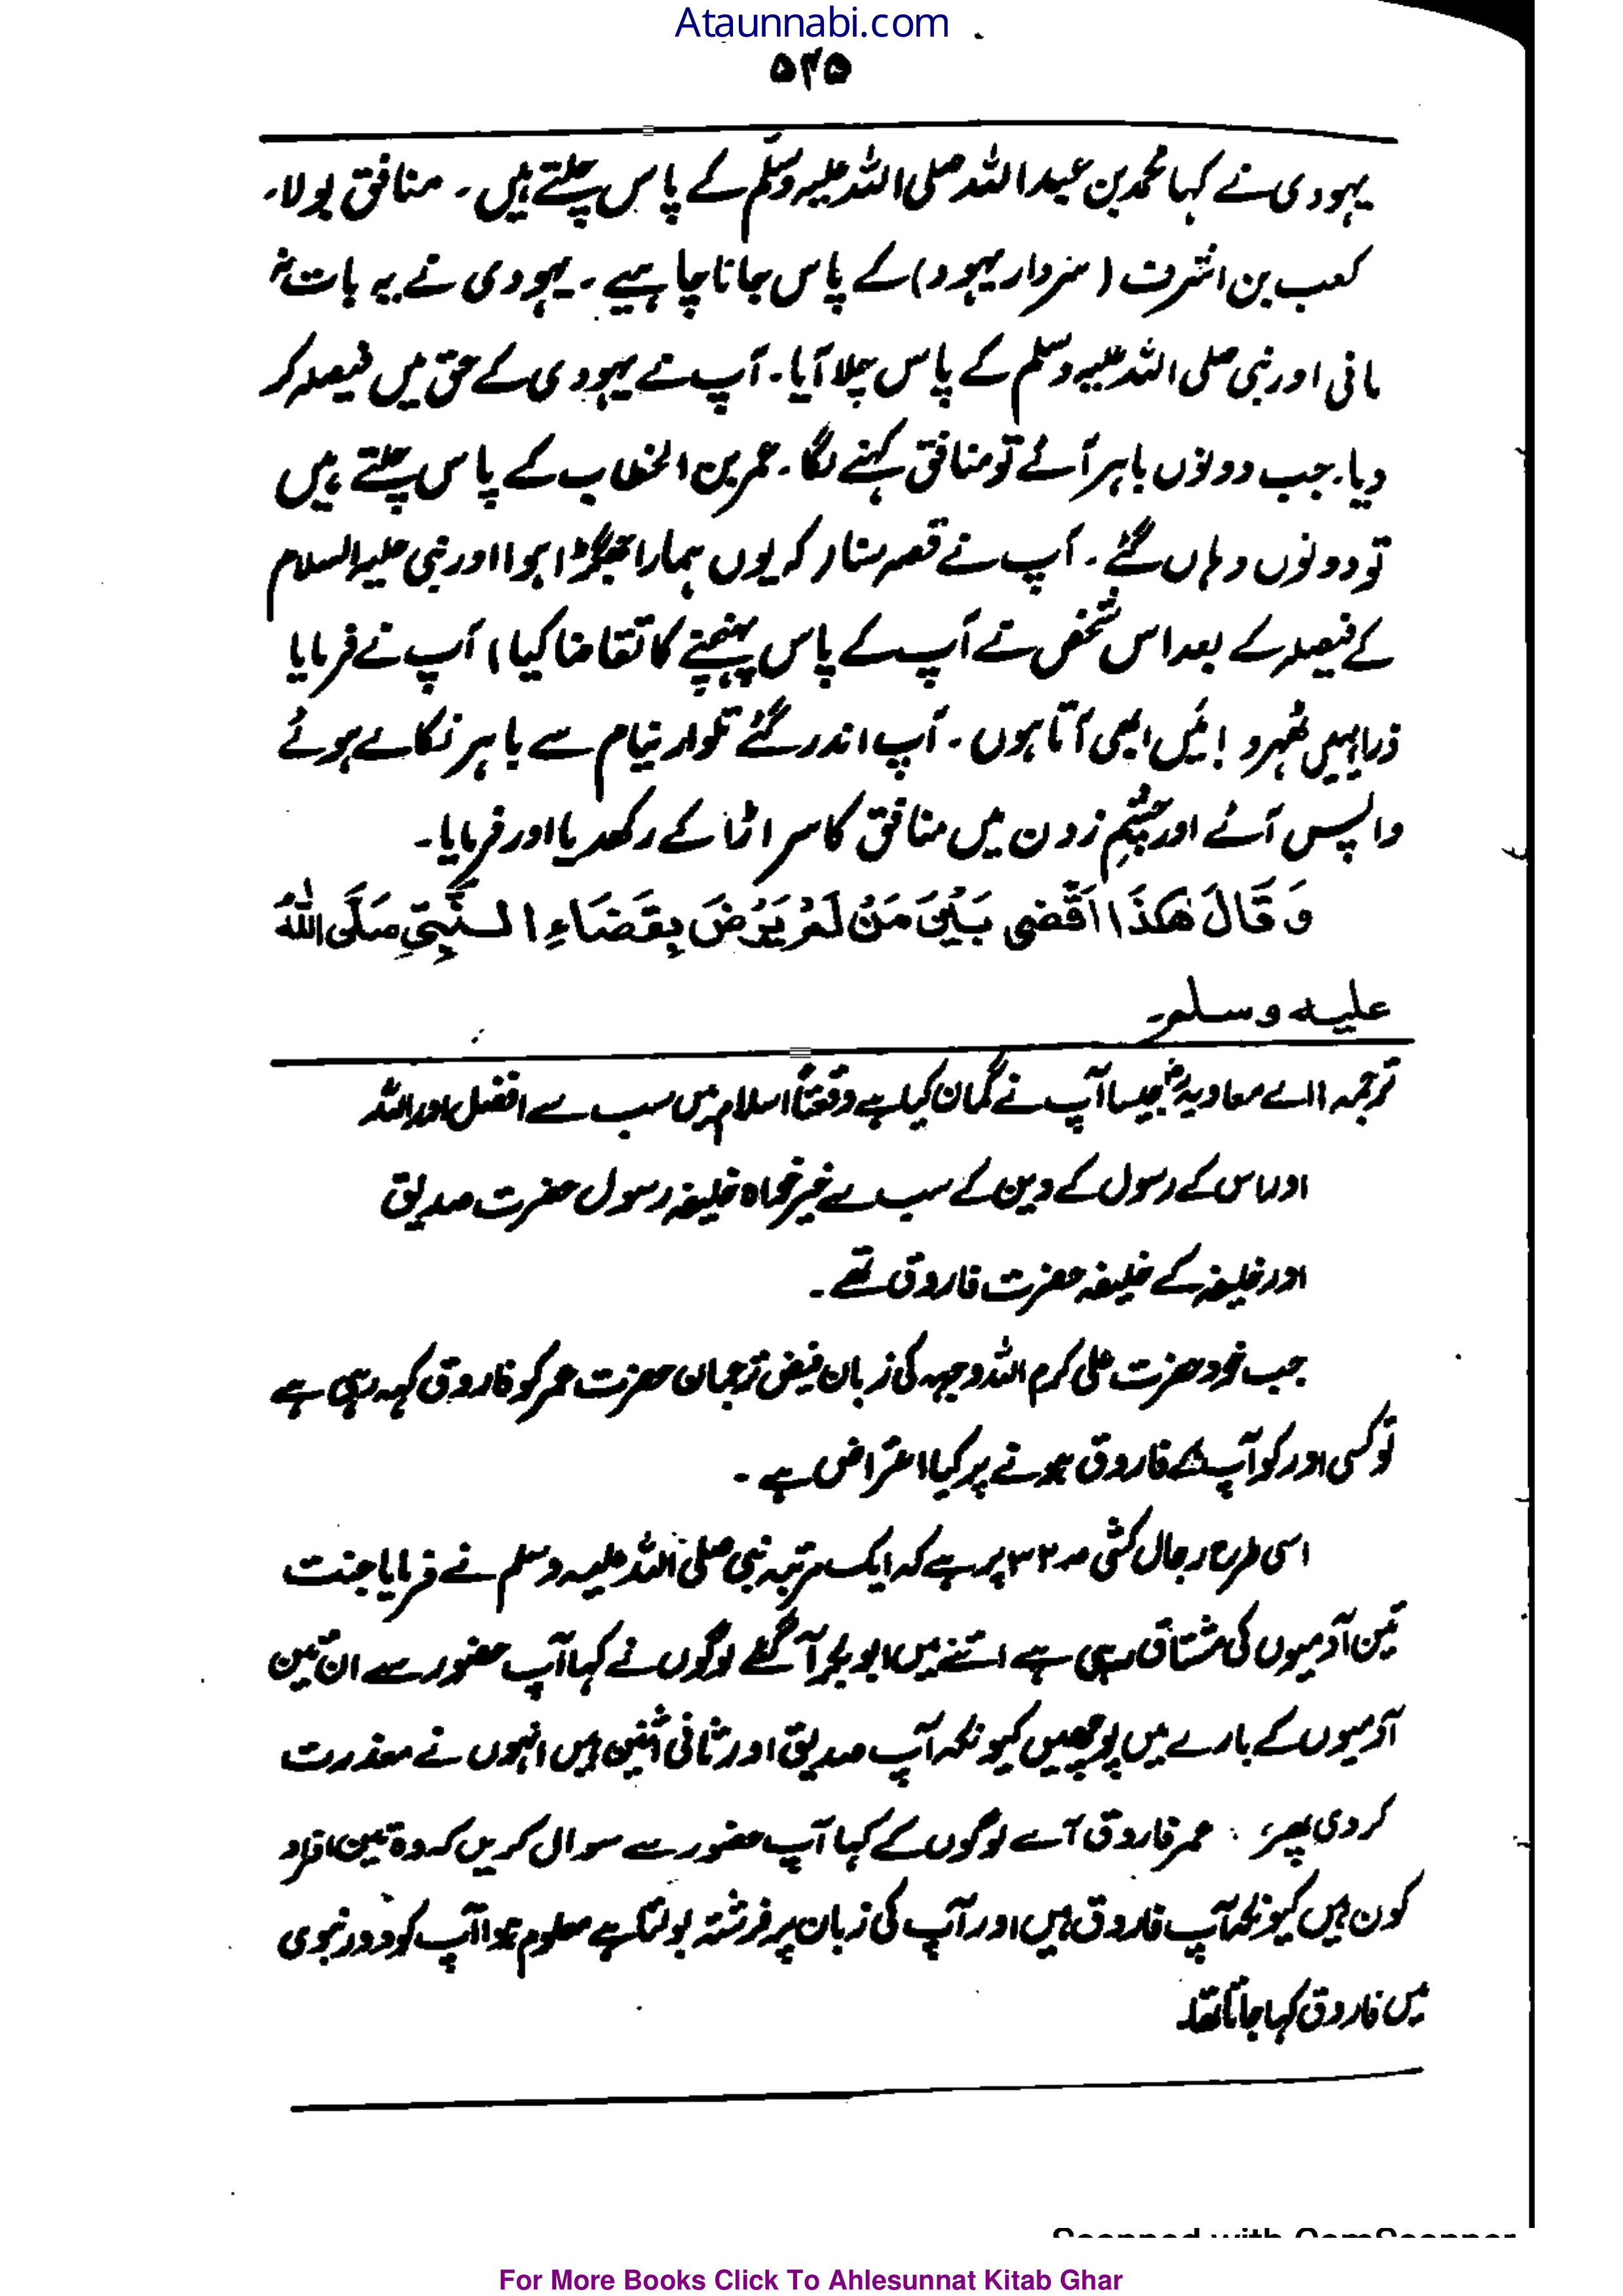 Ataunnabi.com
۵۲۵
یہودی نے کہا محمد بن عبداللہ صلی اللہ علیہ وسلم کے پاس چلتے ہیں۔ منافق بولا۔
کعب بن اشرف (سردار یہود) کے پاس جانا چاہیے۔ یہودی نے یہ بات نہ
مانی اور نبی صلی اللہ علیہ وسلم کے پاس چلا آیا۔ آپ نے یہودی کے حق میں فیصلہ کر
دیا۔ جب دونوں باہر آئے تو منافق کہنے لگا۔ عمر بن الخطاب کے پاس چلتے ہیں
تو دونوں وہاں گئے۔ آپ نے قصہ سنا (کہ یوں ہمارا جھگڑا ہوا اور نبی علیہ السلام
کے فیصلہ کے بعد اس شخص نے آپ کے پاس پہنچنے کا تقاضا کیا) آپ نے فرمایا
ذرا یہیں ٹھہرو! میں ابھی آتا ہوں۔ آپ اندر گئے تلوار نیام سے باہر نکالے ہوئے
واپس آئے اور چشمِ زدن میں منافق کا سر اڑا کے رکھدیا اور فرمایا۔
وَقَالَ هٰكَذَا اَقْضِی بَيْنَ مَنْ لَمْ يَرْضَ بِقَضَاءِ النَّبِیِّ صَلَّی اللّٰهُ
علیه وسلم۔
ترجمہ: اے معاویہؓ جیسا آپ نے گمان کیا ہے وقعتاً اسلام میں سب سے افضل اور اللہ
اور اس کے رسول کے دین کے سب سے خیر خواہ خلیفہ رسول حضرت صدیق
اور خلیفہ کے خلیفہ حضرت فاروق تھے۔
جب خود حضرت علی کرم اللہ وجہہ کی زبان فیض ترجمان حضرت عمر کو فاروق کہہ رہی ہے
تو کسی اور کو آپ کے فاروق ہونے پر کیا اعتراض ہے۔
اسی طرح رجال کشی صہ ۳۲ پر ہے کہ ایک مرتبہ نبی صلی اللہ علیہ وسلم نے فرمایا جنت
تین آدمیوں کی مشتاق رہی ہے اتنے میں ابو بکر آ گئے لوگوں نے کہا آپ حضور سے ان تین
آدمیوں کے بارے میں پوچھیں کیونکہ آپ صدیق اور ثانی اثنین ہیں انہوں نے معذرت
کر دی پھر عمر فاروق آے لوگوں کے کہا آپ حضور سے سوال کریں کہ وہ تین افراد
کون ہیں کیونکہ آپ فاروق ہیں اور آپ کی زبان پر فرشتہ بولتا ہے معلوم ہوا آپ کو دور نبوی
میں فاروق کہا جاتا تھا۔
Scanned with CamScanner
For More Books Click To Ahlesunnat Kitab Ghar